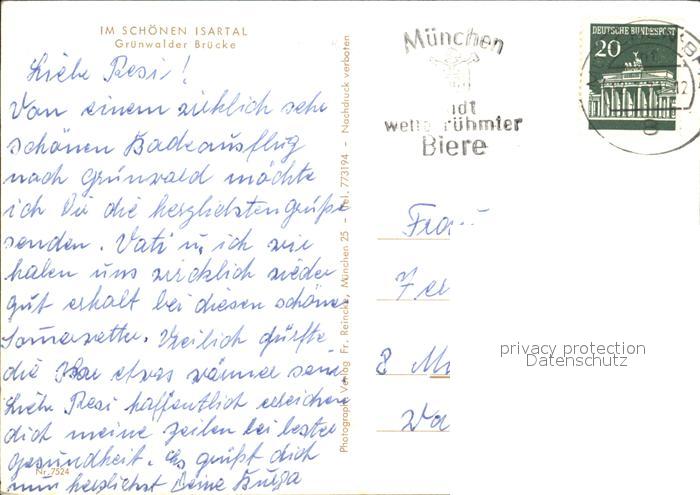 IM SCHÖNEN ISARTAL
Grünwalder Brücke
Liebe Resi!
Von einem wirklich sehr
schönen Badeausflug
nach Grünwald möchte
ich Dir die herzlichsten Grüße
senden. Vati u. ich wir
haben uns wirklich wieder
gut erholt bei diesen schönen
Sommerwetter. Freilich dürfte
die Isar etwas wärmer sein
Liebe Resi hoffentlich erreichen
dich meine Zeilen bei bester
Gesundheit. Es grüßt dich
nun herzlichst Deine
Nr. 7524
Photographie Verlag Fr. Reincke, München 25 - Tel. 773194 - Nachdruck verboten
München
dt
weltberühmter
Biere
DEUTSCHE BUNDESPOST
20
12
8
Frau
Fer
8 Mü
Wa
privacy protection
Datenschutz